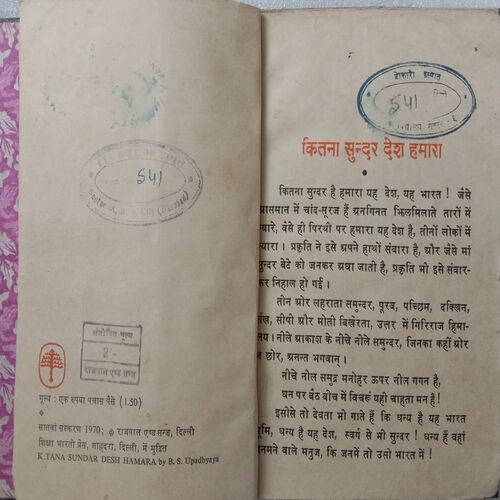 541
संशोधित मूल्य
2-
राजपाल एण्ड सन्ज़
मूल्य : एक रुपया पचास पैसे (1.50)
सातवां संस्करण 1970; © राजपाल एण्ड सन्ज़, दिल्ली
शिक्षा भारती प्रेस, शाहदरा, दिल्ली, में मुद्रित
K.TANA SUNDAR DESH HAMARA by B. S. Upadhyaya
बोकारो इस्पात
541
कितना सुन्दर देश हमारा
कितना सुन्दर है हमारा यह देश, यह भारत ! जैसे
ग्रासमान में चांद-सूरज हैं अनगिनत झिलमिलाते तारों में
यारे, वैसे ही पिरथी पर हमारा यह देश है, तीनों लोकों में
यारा । प्रकृति ने इसे अपने हाथों संवारा है, और जैसे मां
सुन्दर बेटे को जनकर अघा जाती है, प्रकृति भी इसे संवार-
कर निहाल हो गई ।
तीन ओर लहराता समुन्दर, पूरब, पच्छिम, दक्खिन,
शंख, सीपी और मोती बिखेरता, उत्तर में गिरिराज हिमा-
लय । नीले आकाश के नीचे नील समुन्दर, जिनका कहीं ओर
न छोर, अनन्त भगवान् ।
नीचे नील समुद्र मनोहर ऊपर नील गगन है,
घन पर बैठ बीच में बिचरूं यही चाहता मन है !
इसीसे तो देवता भी गाते हैं कि धन्य है यह भारत
भूमि, धन्य है यह देश, स्वर्ग से भी सुन्दर ! धन्य हैं वहां
जनमने वाले मनुज, कि जनमें तो उसी भारत में !